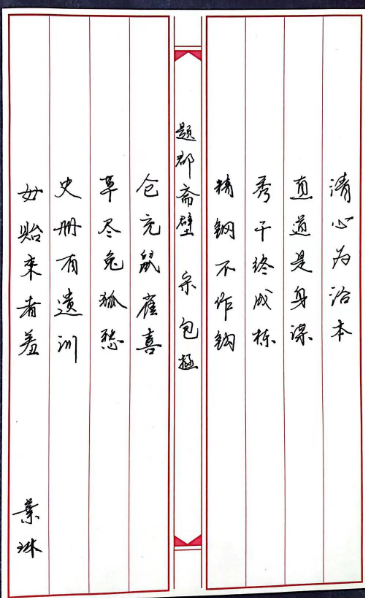 清心为治本
直道是身谋
秀干终成栋
精钢不作钩
题郡斋壁 宋 包拯
仓充鼠雀喜
草尽兔狐愁
史册有遗训
毋贻来者羞
葉